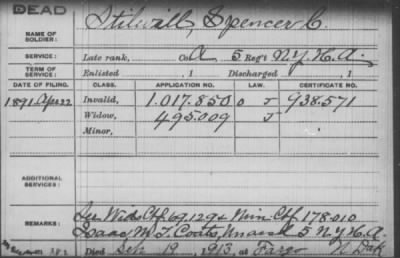 DEAD
NAME OF SOLDIER: Stilwell, Spencer C.
SERVICE: Late rank, Co. A, 5 Reg't N.Y.H.A.
TERM OF SERVICE: Enlisted , 1 Discharged , 1
DATE OF FILING. CLASS. APPLICATION NO. LAW. CERTIFICATE NO.
1891, Apr 22 Invalid, 1.017.850 O J 938.571
Widow, 495.009 J
Minor,
ADDITIONAL SERVICES:
REMARKS: See Wids Ctf 69.129 & Min Ctf 178.010
Isaac M. T. Coats, 5 N.Y.H.A.
Died Feb 19, 1913, at Fargo N Dak